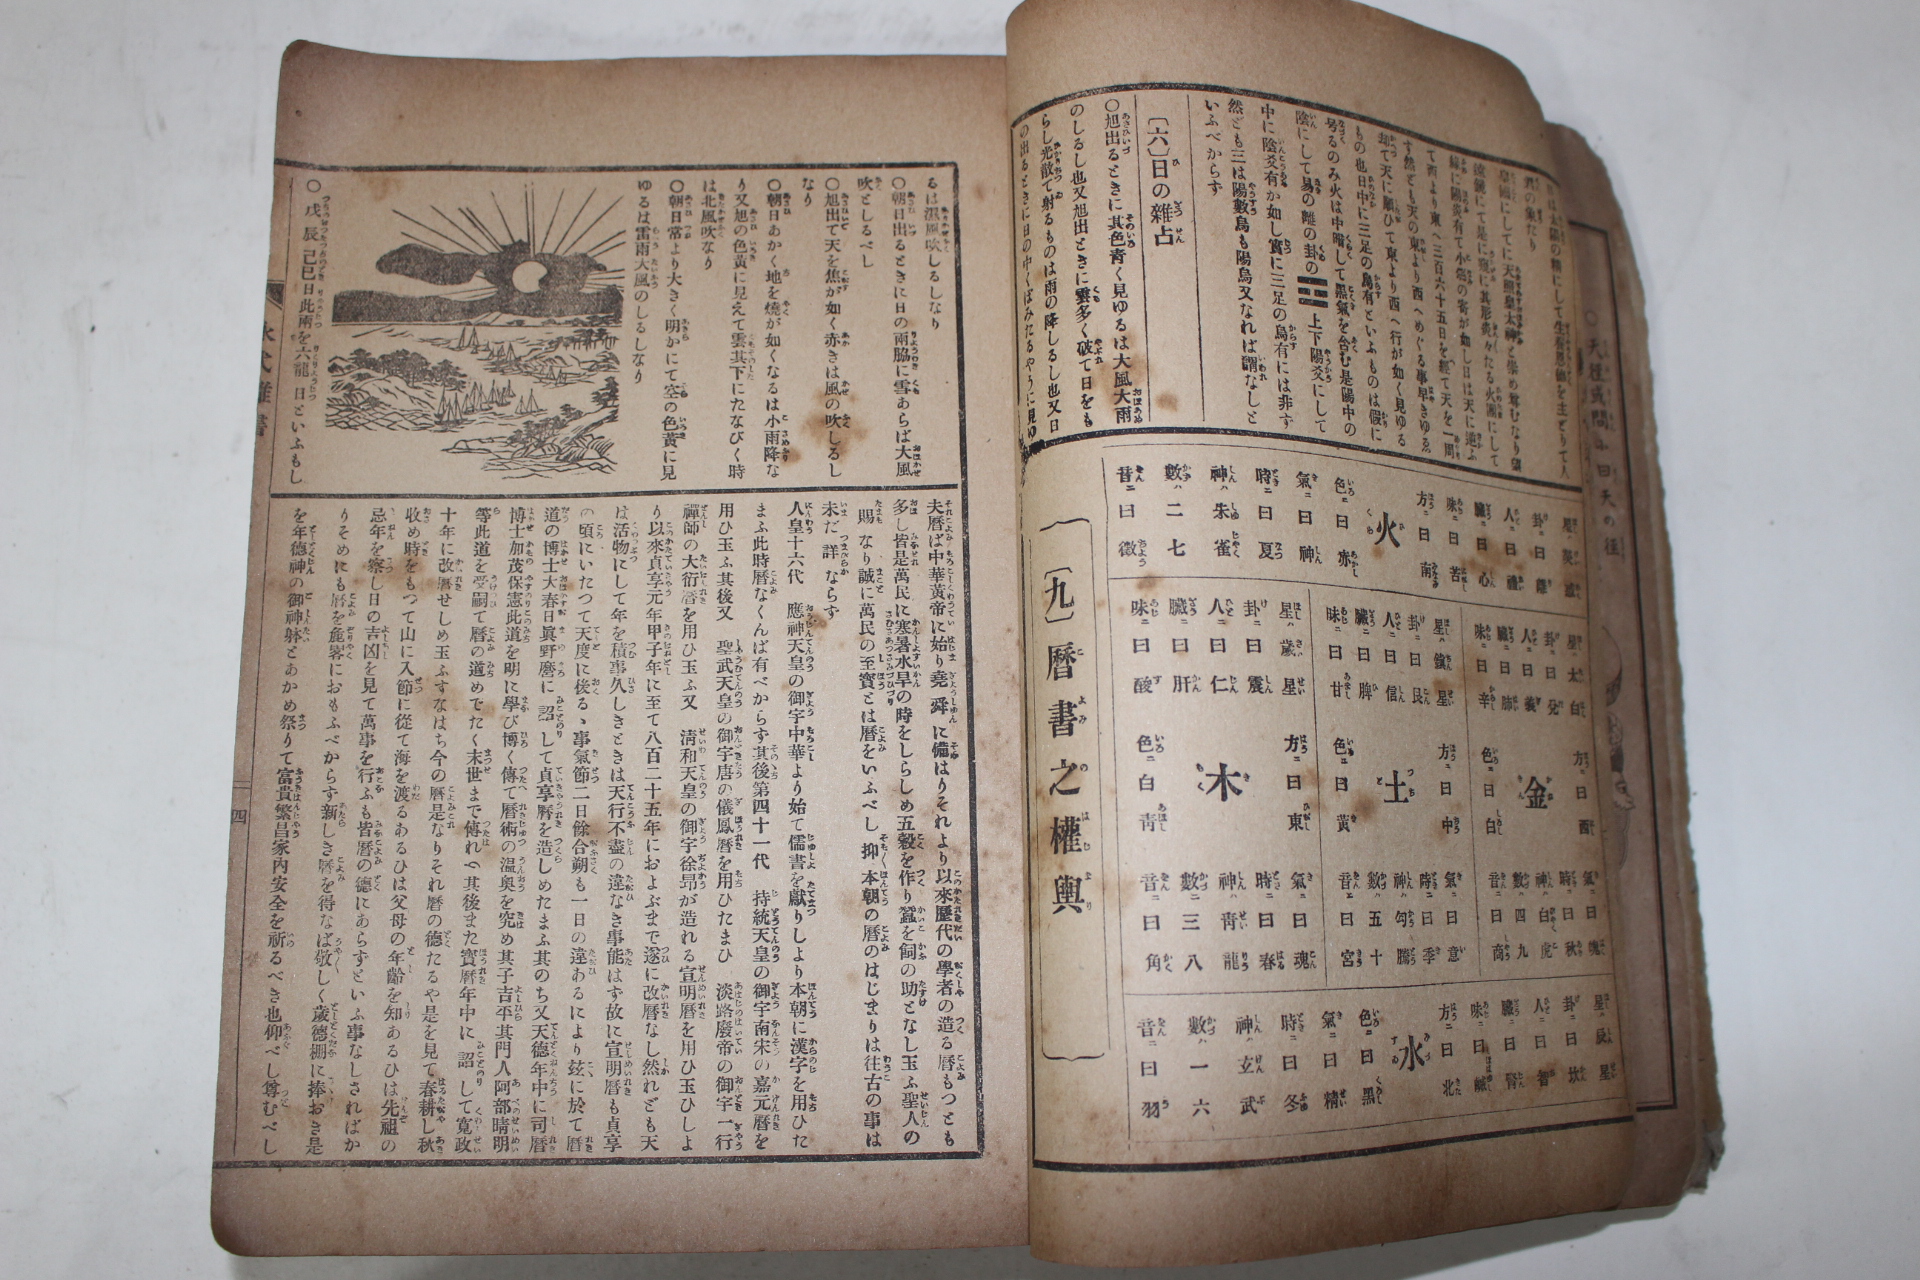 〔六〕日の雜占
〇旭出るときに其色青く見ゆるは大風大雨
のしるし也又旭出ときに雲多く破て日をも
らし光散て射るものは雨の降しるし也又日
の出るときに日の中くぼみたるやうに見ゆ
陰にして易の離の卦の☲上下陽爻にして
中に陰爻有か如し實に三足の烏有には非ず
然ども三は陽數烏も陽鳥又なれば謂なしと
いふべからす
火
色ニ曰赤
氣ニ曰神
時ニ曰夏
神ハ朱雀
數ハ二七
音ニ曰徴
方ニ曰南
味ニ曰苦
臟ニ曰心
人ニ曰禮
卦ニ曰離
金
星ハ太白
卦ニ曰兌
人ニ曰義
臟ニ曰肺
味ニ曰辛
方ニ曰西
色ニ曰白
氣ニ曰魄
時ニ曰秋
神ハ白虎
數ハ四九
音ニ曰商
土
星ハ鎭星
卦ニ曰艮
人ニ曰信
臟ニ曰脾
味ニ曰甘
方ニ曰中
色ニ曰黃
氣ニ曰意
時ニ曰季
神ハ勾騰
數ハ五十
音ニ曰宮
木
星ハ歲星
卦ニ曰震
人ニ曰仁
臟ニ曰肝
味ニ曰酸
方ニ曰東
色ニ曰青
氣ニ曰魂
時ニ曰春
神ハ青龍
數ハ三八
音ニ曰角
水
星ハ辰星
卦ニ曰坎
人ニ曰智
臟ニ曰腎
味ニ曰鹹
方ニ曰北
色ニ曰黑
氣ニ曰精
時ニ曰冬
神ハ玄武
數ハ一六
音ニ曰羽
〔九〕曆書之權輿
るは濕風吹しるしなり
〇朝日出るときに日の兩脇に雪あらば大風
吹としるべし
〇旭出て天を焦が如く赤きは風の吹しるし
なり
〇朝日あかく地を燒が如くなるは小雨降な
り又旭の色黃に見えて雲其下にたなびく時
は北風吹なり
〇朝日常より大きく明かにて空の色黃に見
ゆるは雷雨大風のしるしなり
〇戊辰己巳日此兩を六龍日といふもし
夫曆ば中華黃帝に始り堯舜に備はりそれより以來歷代の學者の造る曆もつとも
多し皆是萬民に寒暑水旱の時をしらしめ五穀を作り蠶を飼の助となし玉ふ聖人の
賜なり誠に萬民の至寶とは曆をいふべし抑本朝の曆のはじまりは往古の事は
未だ詳ならす
人皇十六代應神天皇の御宇中華より始て儒書を獻りしより本朝に漢字を用ひた
まふ此時曆なくんば有べからす其後第四十一代持統天皇の御宇南宋の嘉元曆を
用ひ玉ふ其後又聖武天皇の御宇唐の儀鳳曆を用ひたまひ淡路廢帝の御宇一行
禪師の大衍曆を用ひ玉ふ又淸和天皇の御宇徐昻が造れる宣明曆を用ひ玉ひしよ
り以來貞享元年甲子年に至て八百二十五年におよぶまで遂に改曆なし然れども天
は活物にして年を積事久しきときは天行不盡の違なき事能はす故に宣明曆も貞享
の頃にいたつて天度に後るゝ事氣節二日餘合朔も一日の違あるにより玆に於て曆
道の博士大春日眞野麿に詔して貞享曆を造しめたまふ其のち又天德年中に司曆
博士加茂保憲此道を明に學び博く傳て曆術の温奥を究め其子吉平其門人阿部晴明
等此道を受嗣て曆の道めでたく末世まで傳れり其後また寶曆年中に詔して寬政
十年に改曆せしめ玉ふすなはち今の曆是なりそれ曆の德たるや是を見て春耕し秋
收め時をもつて山に入節に從て海を渡るあるひは父母の年齡を知あるひは先祖の
忌年を察し日の吉凶を見て萬事を行ふも皆曆の德にあらずといふ事なしさればか
りそめにも曆を麁畧におもふべからす新しき曆を得なば敬しく歲德棚に捧おき是
を年德神の御神躰とあかめ祭りて富貴繁昌家內安全を祈るべき也仰べし尊むべし
四